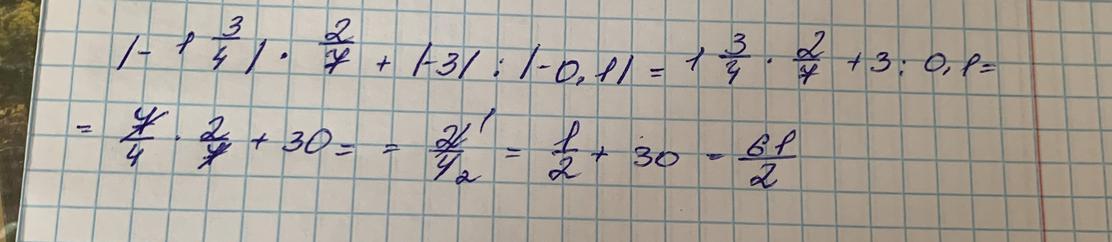 |-1 3/4| · 2/7 + |-3| : |-0,1| = 1 3/4 · 2/7 + 3 : 0,1 =
= 7/4 · 2/7 + 30 = = 2/4 1 2 = 1/2 + 30 = 61/2